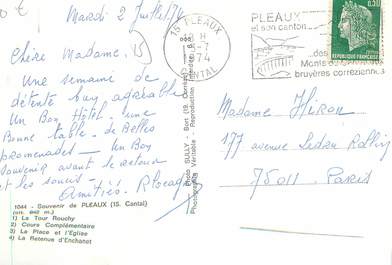 Mardi 2 Juillet 74
Chère Madame,
Une semaine de
détente bien agréable
Un Bon Hôtel - une
Bonne table - de Belles
promenades - Un Bon
Souvenir avant le retour
et les soucis -
Amitiés.
1044 - Souvenir de PLEAUX (15. Cantal)
(alt. 642 m.)
1) La Tour Rouchy
2) Cours Complémentaire
3) La Place et l'Eglise
4) La Retenue d'Enchanet
SULLY - Bort (19. Corrèze)
Véritable - Reproduction Interdite
15 PLEAUX
H
-7
1974
CANTAL
PLEAUX
et son canton
des
Monts du
bruyères corréziennes
0,30
Madame Hiron
177 avenue Ledru Rollin
75011 - Paris